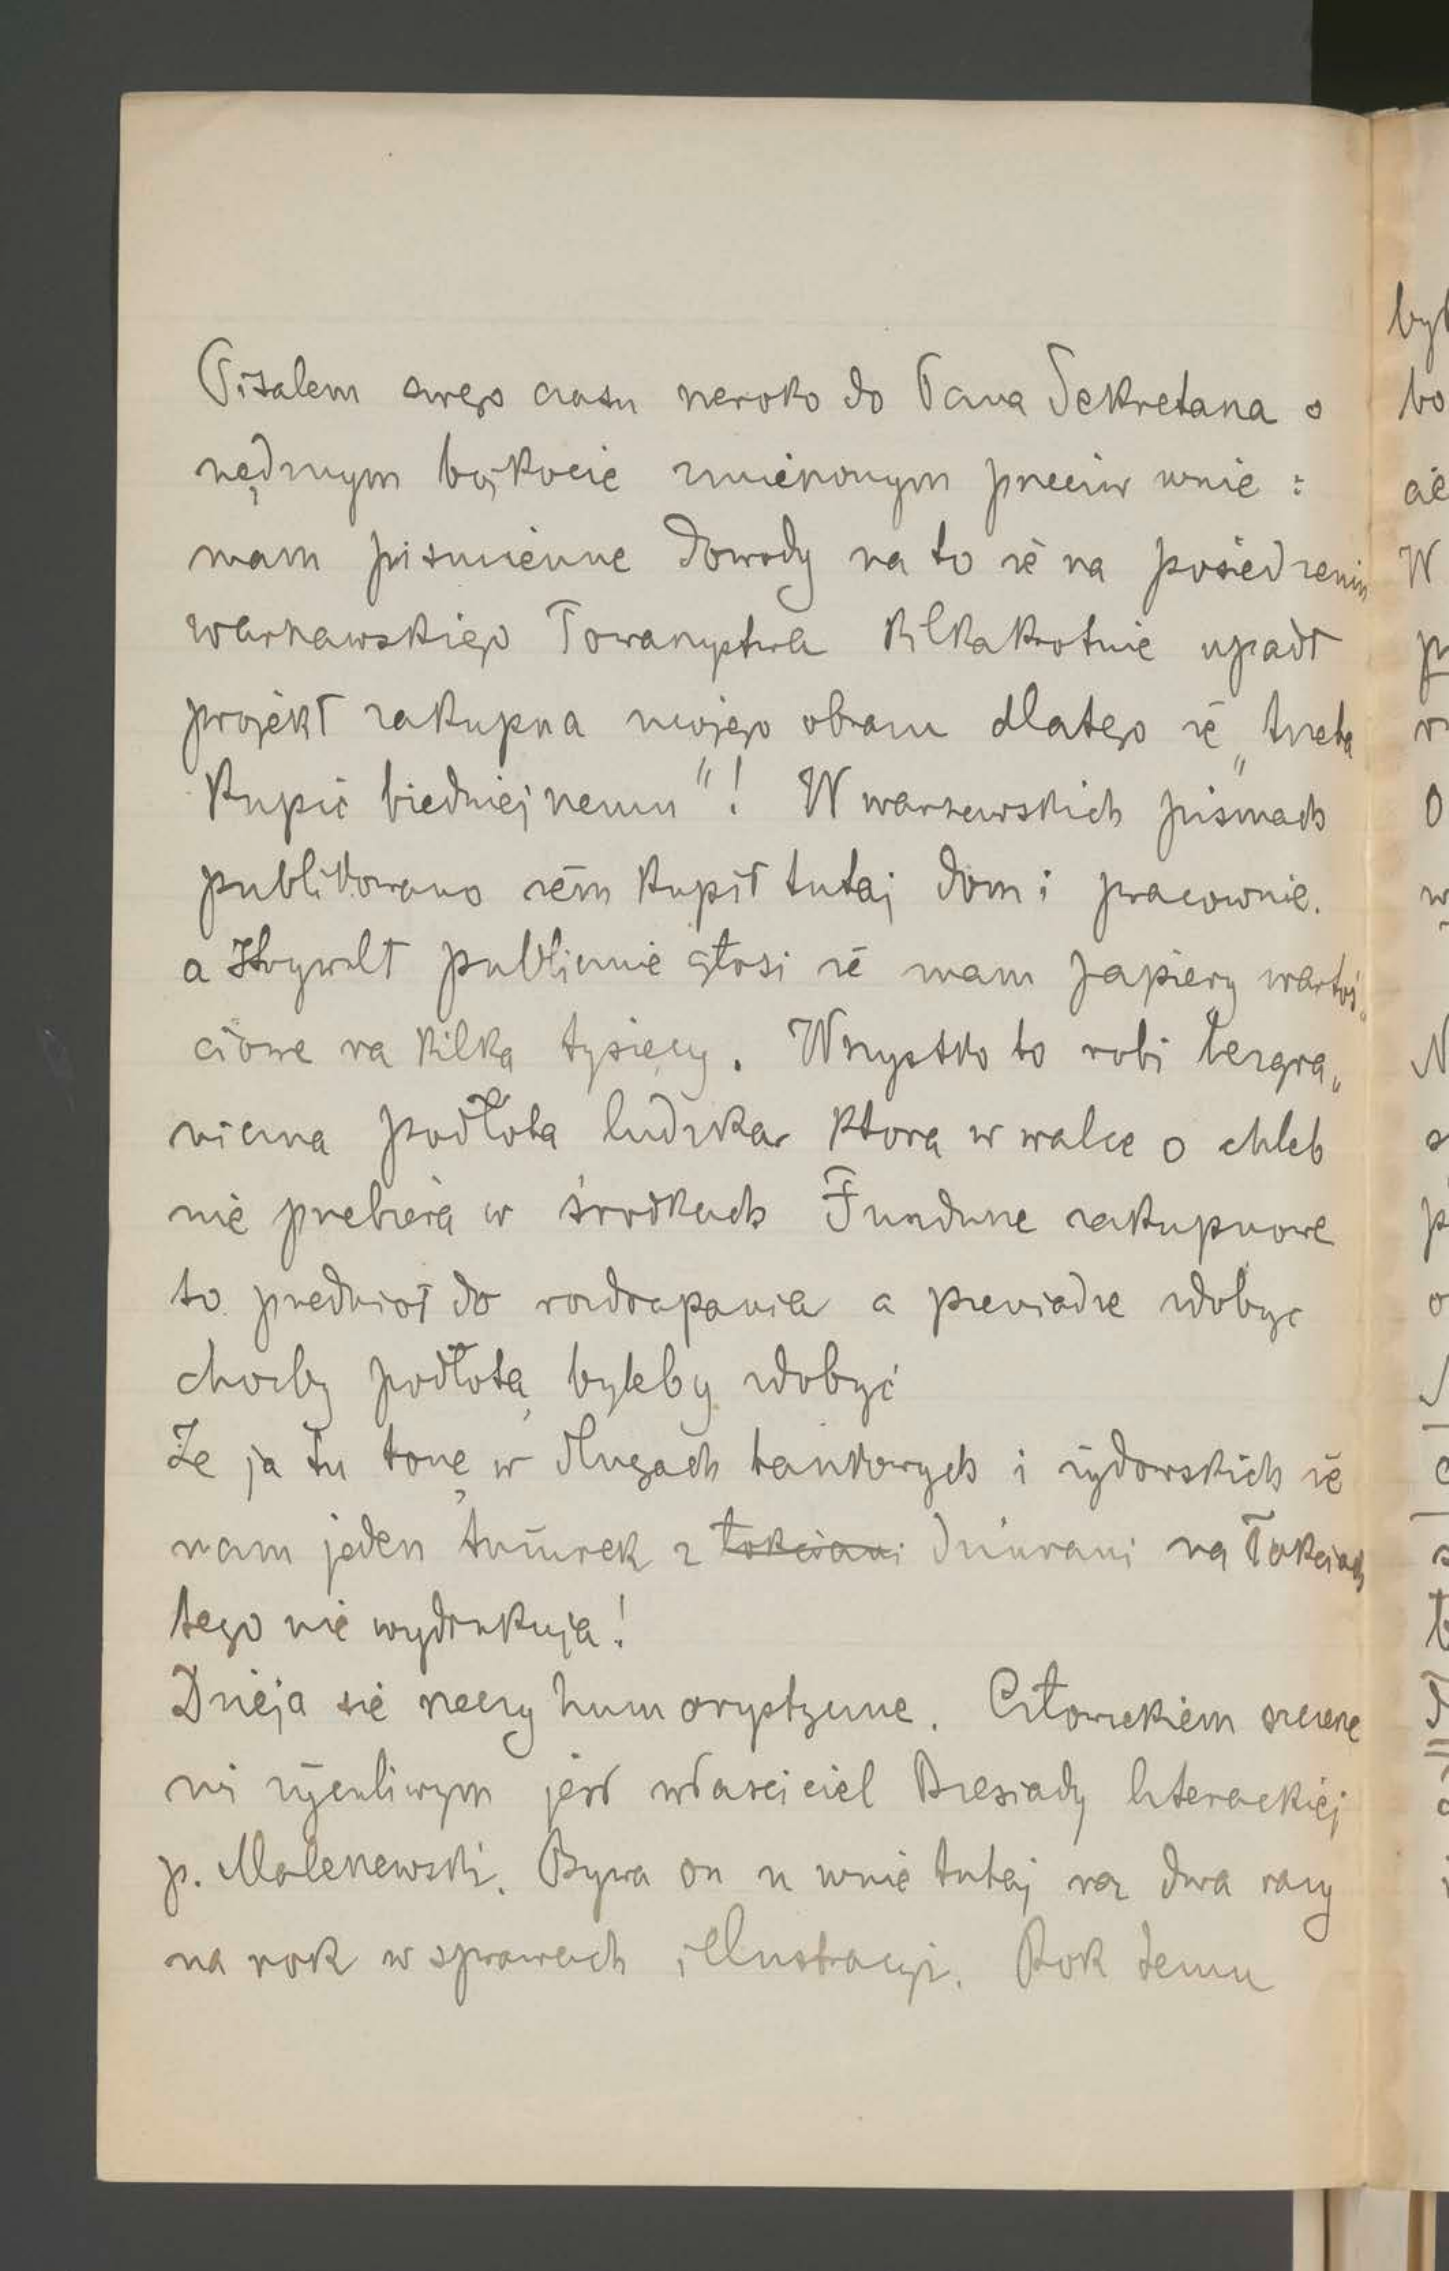 Pisalem swego czasu szeroko do Pana Sekretarza o
nędznym bojkocie zmierzonym przeciw mnie :
mam pismienne dowody na to że na posiedzeniu
warszawskiego Towarzystwa kilkakrotnie upadł
projekt zakupna mojego obrazu dlatego że „trzeba
kupić biedniejszemu"! W warszawskich pismach
publikowano żem kupił tutaj dom i pracownie.
a Krywult publicznie głosi że mam papiery wartoś„
ciowe na kilka tysięcy. Wszystko to robi bezgra„
niczna podłota ludzka ktora w walce o chleb
nie przebiera w środkach Fundusze zakupnowe
to przedmiot do rozdrapania a pieniadze zdobyc
chocby podłotą byleby zdobyć
Że ja tu tonę w dlugach bankowych i żydowskich że
mam jeden tużurek z łokciami dziurami na łokciach
tego nie wydrukuja!
Dzieja się rzeczy humorystyczne. Człowiekiem szczerze
mi życzliwym jest własciciel Biesiady literackiej
p. Maleszewski. Bywa on u mnie tutaj raz dwa razy
na rok w sprawach illustracyi. Rok temu
byt
bo
cie
W